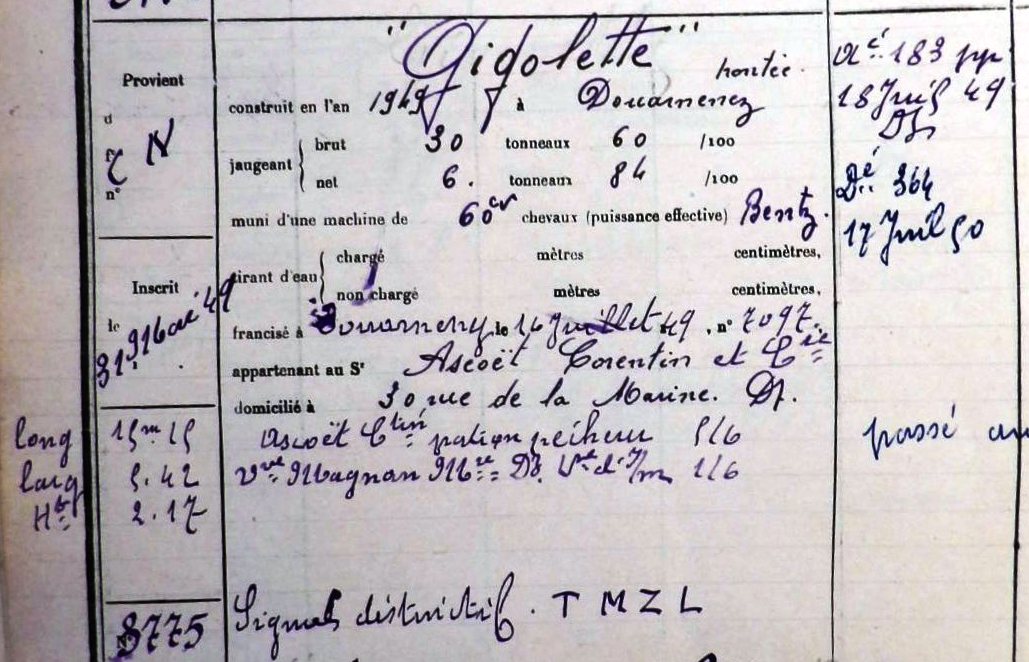 "Gigolette"
pontée.
Provient
construit en l'an 1949 à Douarnenez
d
brut 30 tonneaux 60 /100
C N
jaugeant
n°
net 6. tonneaux 84 /100
muni d'une machine de 60 cv chevaux (puissance effective) Bentz.
tirant d'eau
chargé mètres centimètres,
non chargé mètres centimètres,
Inscrit
le
31 Mai 49
francisé à Douarnenez, le 16 Juillet 49, n° 7097.
appartenant au Sr Ascoët Corentin et Cie
domicilié à 30 rue de la Marine. Dz.
long 15m15 Ascoët Ctin patron pêcheur 5/6
larg 5.42 Vve Magnan Dz. 1/6
Ht 2.17
N° 8775
Signal distinctif. T M Z L
Ac. 183 pp
18 Juil 49
Dz
Dé 364
17 Juil 50
passé au